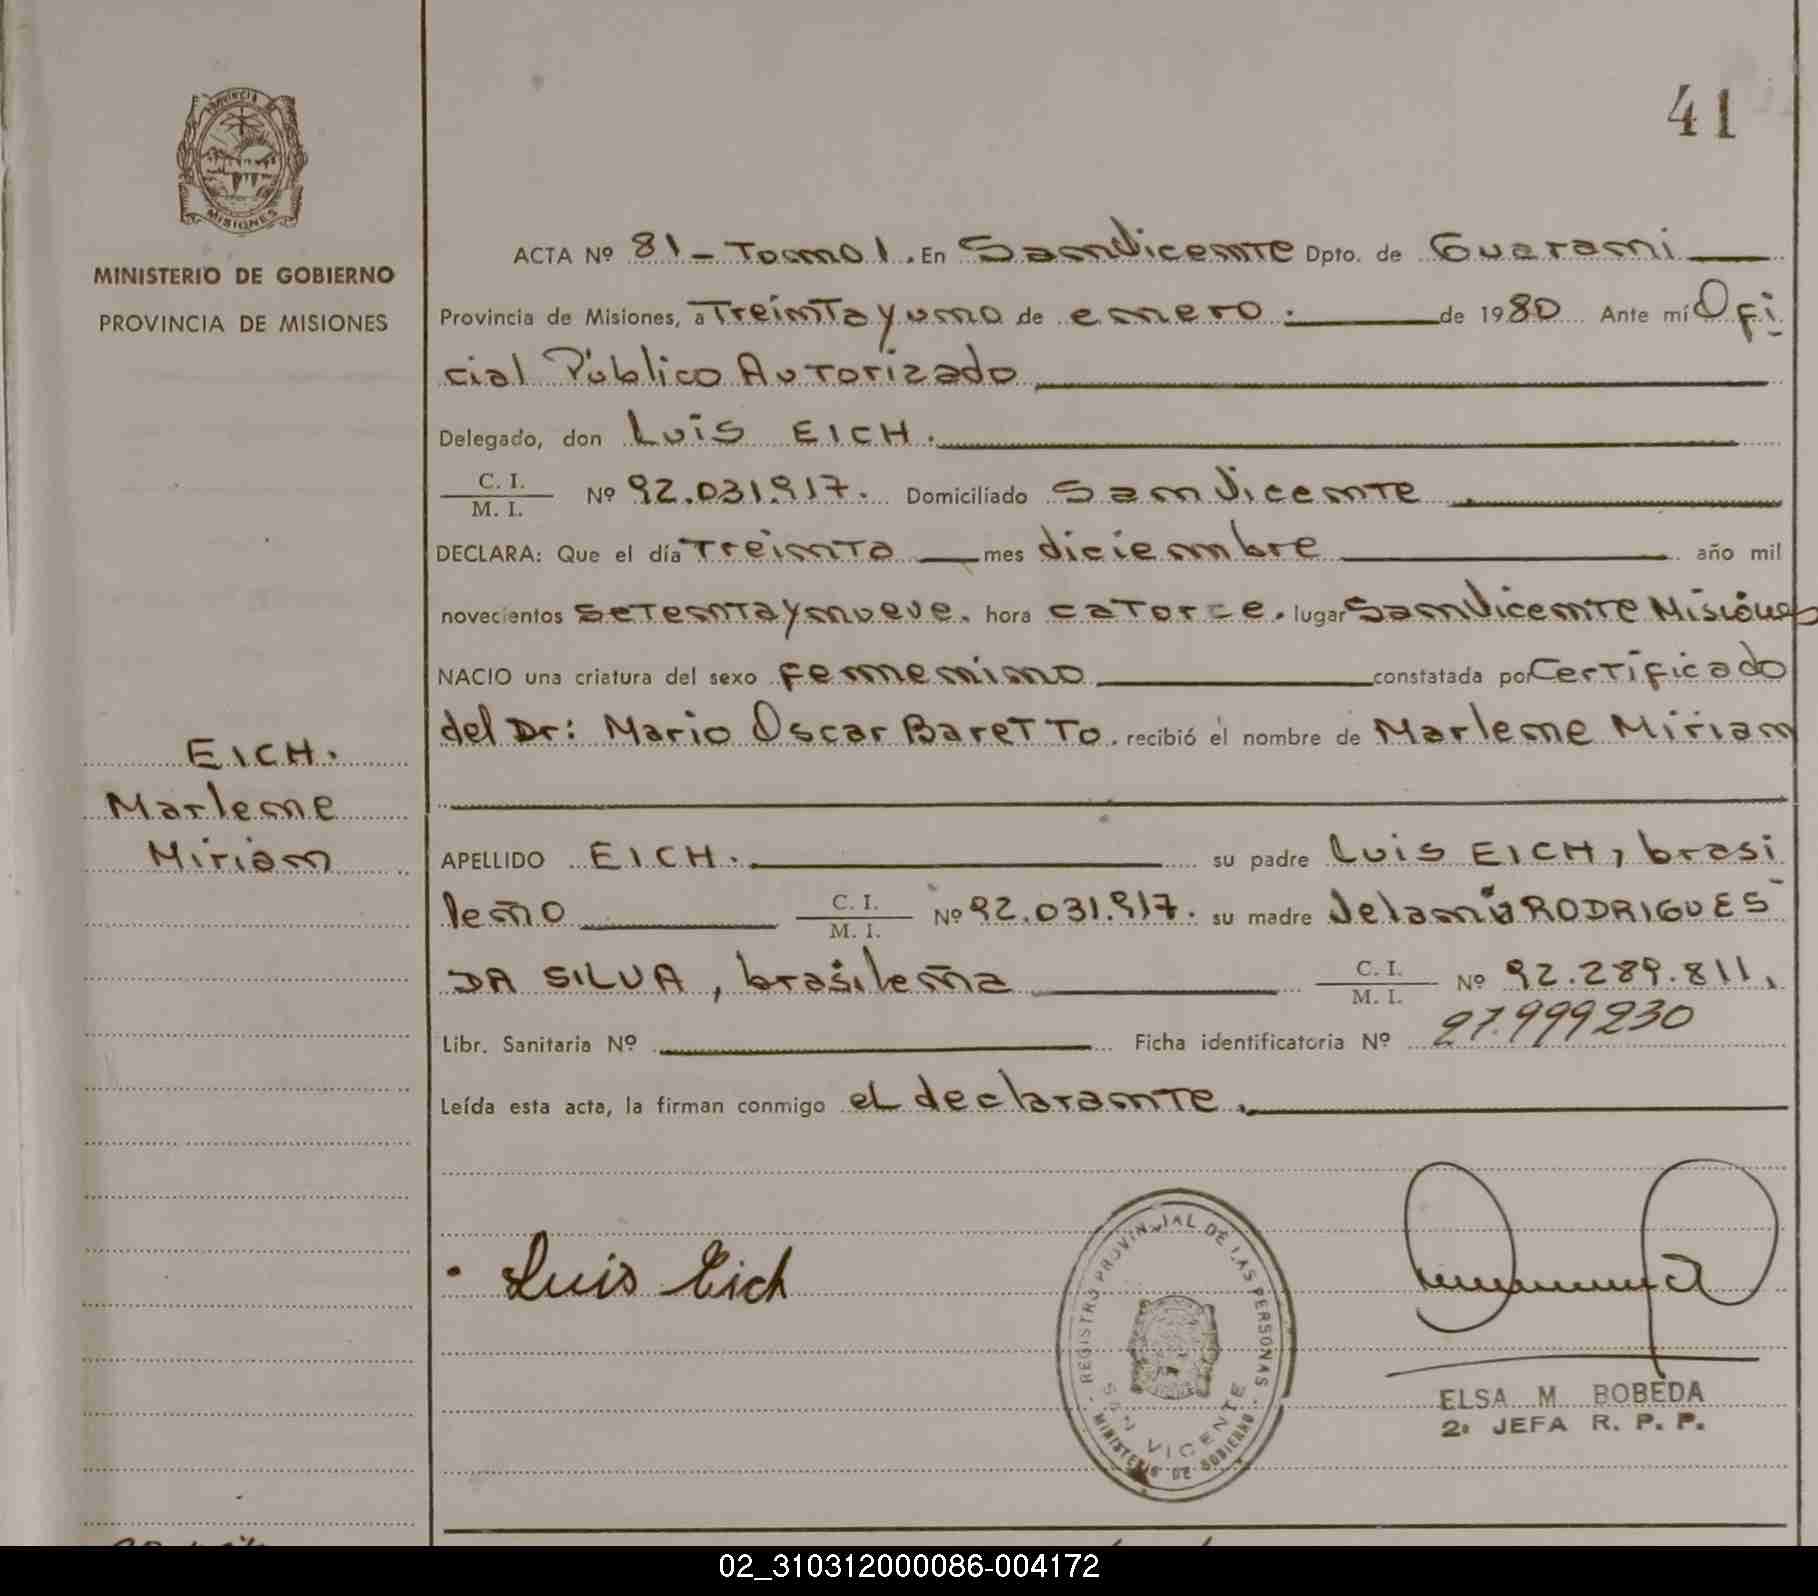 41
PROVINCIA DE
MISIONES
MINISTERIO DE GOBIERNO
PROVINCIA DE MISIONES
ACTA Nº 81 - Tomo 1. En San Vicente Dpto. de Guarani
Provincia de Misiones, a Treinta y uno de enero. de 1980 Ante mí Ofi
cial Público Autorizado
Delegado, don Luis EICH.
C. I.
M. I. Nº 92.031.917. Domiciliado San Vicente
DECLARA: Que el día Treinta mes diciembre año mil
novecientos setenta y nueve. hora catorce. lugar San Vicente Misiones
NACIO una criatura del sexo femenino constatada por Certificado
del Dr: Mario Oscar Baretto. recibió el nombre de Marlene Miriam
EICH.
Marlene
Miriam
APELLIDO EICH. su padre Luis EICH, brasi
leño C. I.
M. I. Nº 92.031.917. su madre Velania RODRIGUES
DA SILVA, brasileña C. I.
M. I. Nº 92.289.811,
Libr. Sanitaria Nº Ficha identificatoria Nº 27.999230
Leída esta acta, la firman conmigo el declarante.
Luis Eich
REGISTRO PROVINCIAL DE LAS PERSONAS
SAN VICENTE
MINISTERIO DE GOBIERNO
ELSA M BOBEDA
2ª JEFA R. P. P.
02_310312000086-004172